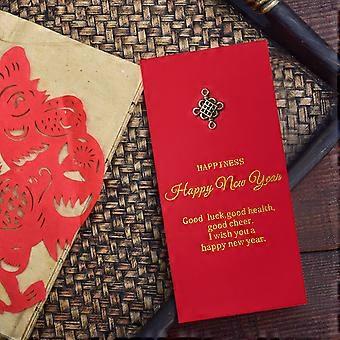 HAPPINESS
Happy New Year
Good luck,good health,
good cheer.
I wish you a
happy new year.